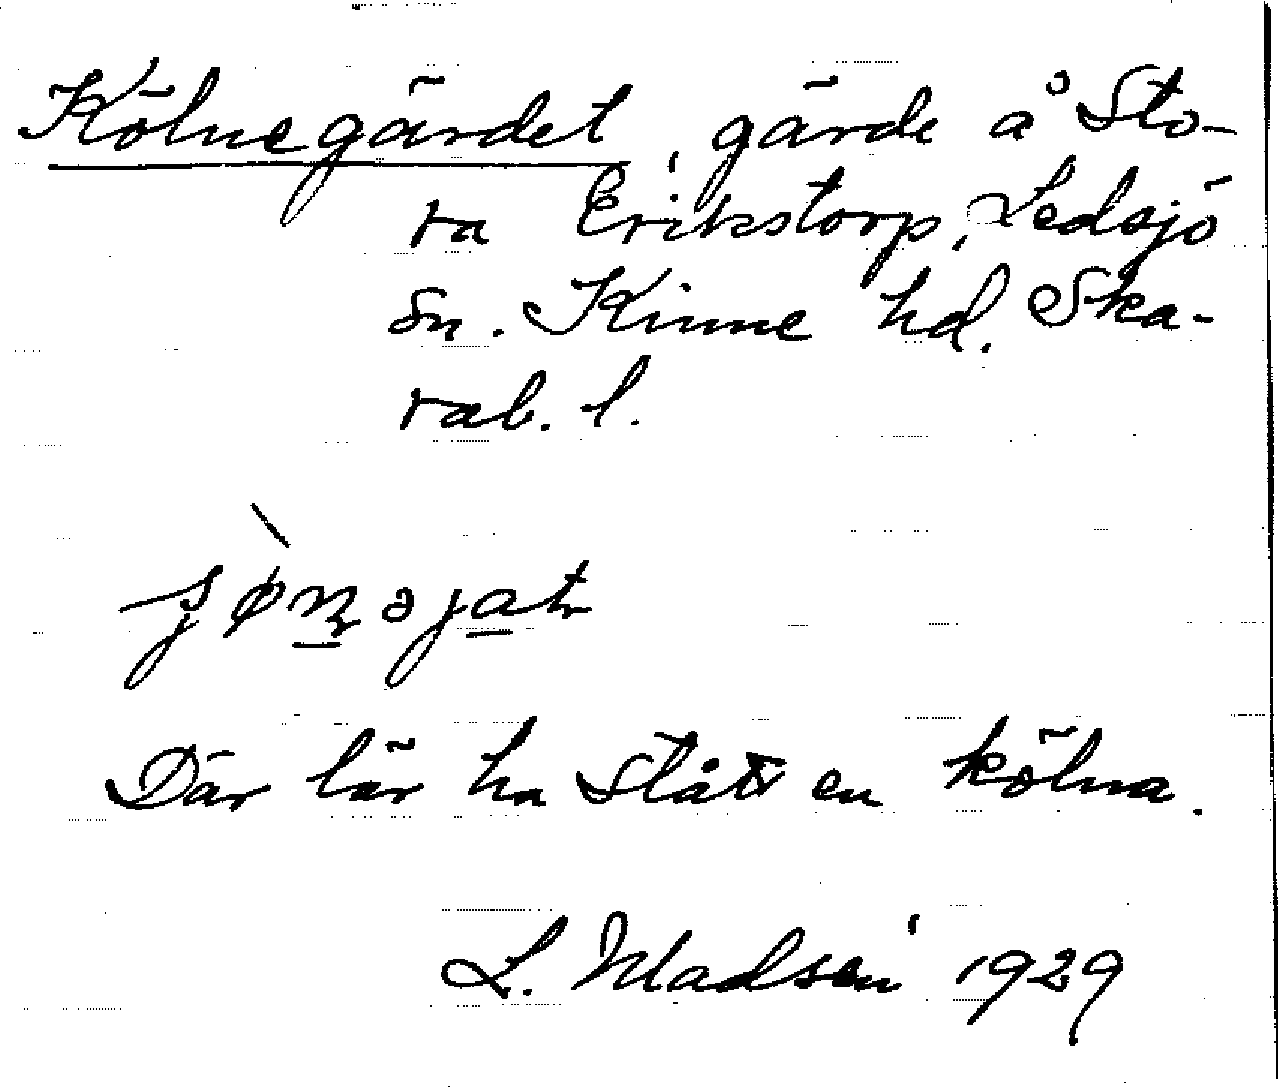 Kölnegärdet, gärde å Sto-
ra Erikstorp, Ledsjö
sn. Kinne hd. Ska-
rab. l.
Där lär ha stått en kölna.
L. Madsen 1929